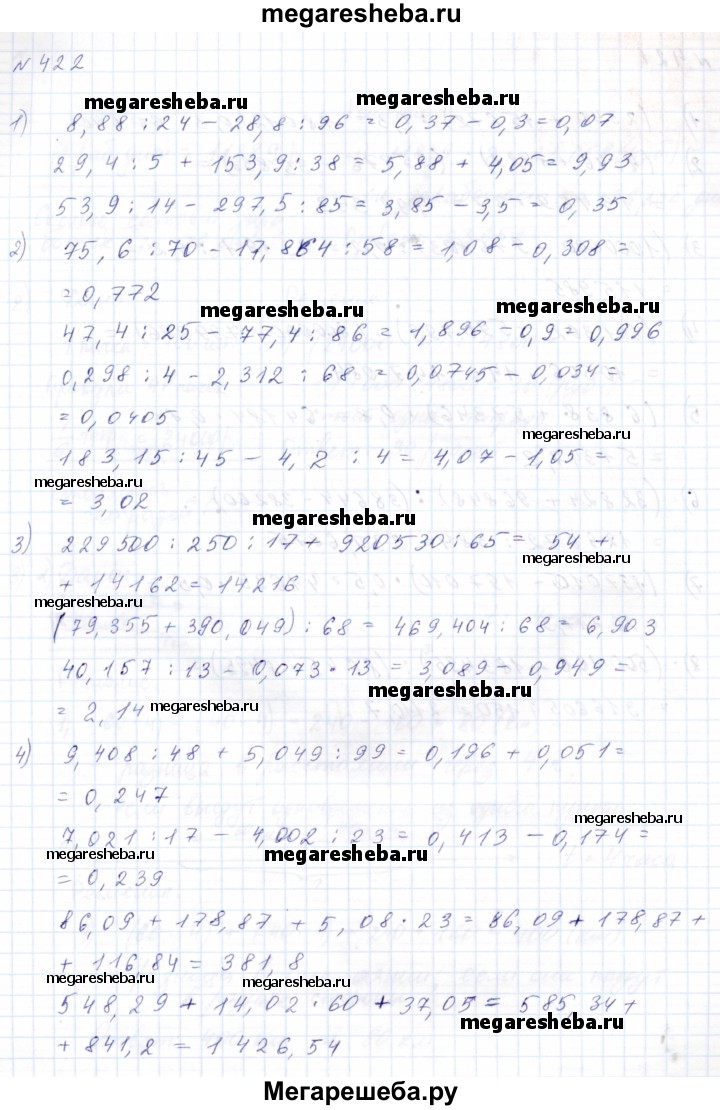 megaresheba.ru
№ 422
megaresheba.ru megaresheba.ru
1) 8,88 : 24 - 28,8 : 96 = 0,37 - 0,3 = 0,07
29,4 : 5 + 153,9 : 38 = 5,88 + 4,05 = 9,93
53,9 : 14 - 297,5 : 85 = 3,85 - 3,5 = 0,35
2) 75,6 : 70 - 17,864 : 58 = 1,08 - 0,308 =
= 0,772
megaresheba.ru megaresheba.ru
47,4 : 25 - 77,4 : 86 = 1,896 - 0,9 = 0,996
0,298 : 4 - 2,312 : 68 = 0,0745 - 0,034 =
= 0,0405
megaresheba.ru
183,15 : 45 - 4,2 : 4 = 4,07 - 1,05 =
megaresheba.ru
= 3,02
megaresheba.ru
3) 229500 : 250 : 17 + 920530 : 65 = 54 +
megaresheba.ru
+ 14162 = 14216
megaresheba.ru
(79,355 + 390,049) : 68 = 469,404 : 68 = 6,903
40,157 : 13 - 0,073 · 13 = 3,089 - 0,949 =
megaresheba.ru
= 2,14
megaresheba.ru
4) 9,408 : 48 + 5,049 : 99 = 0,196 + 0,051 =
= 0,247
megaresheba.ru
7,021 : 17 - 4,002 : 23 = 0,413 - 0,174 =
megaresheba.ru megaresheba.ru
= 0,239
86,09 + 178,87 + 5,08 · 23 = 86,09 + 178,87 +
+ 116,84 = 381,8
megaresheba.ru megaresheba.ru
548,29 + 14,02 · 60 + 37,05 = 585,34 +
megaresheba.ru
+ 841,2 = 1426,54
Мегарешеба.ру